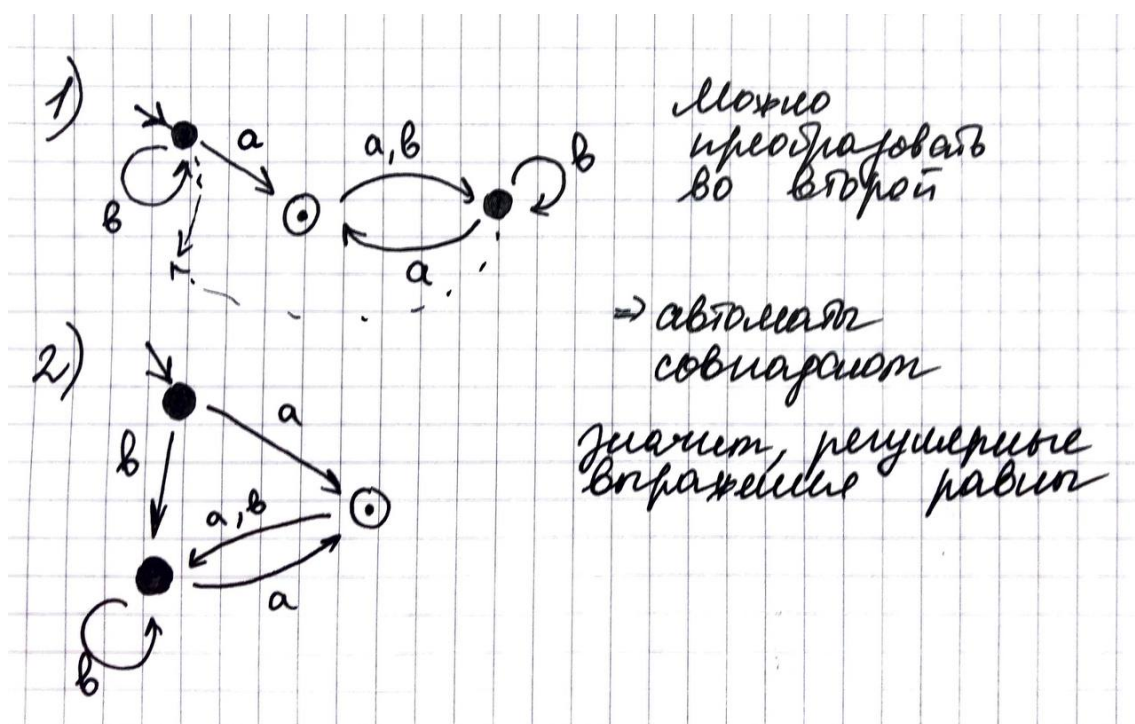 1)
a
a, в
в
в
a
Можно
преобразовать
во второй
=> автоматы
совпадают
2)
a
в
a, в
a
в
значит, регулярные
выражения равны